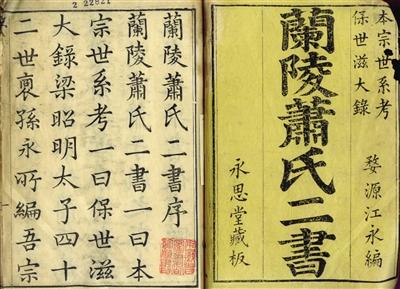 本宗世系考
保世滋大錄
蘭陵蕭氏二書
婺源江永編
永思堂藏板
蘭陵蕭氏二書序
蘭陵蕭氏二書一曰本
宗世系考一曰保世滋
大錄梁昭明太子四十
二世裔孫永所編吾宗
2 22821